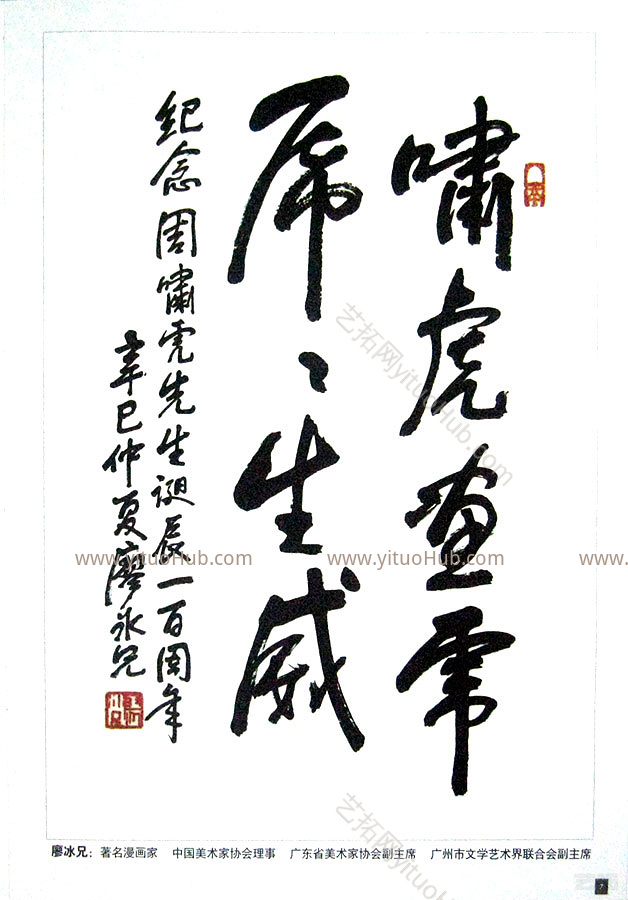 嘯虎画虎
虎々生威
紀念周嘯虎先生誕辰一百周年
辛巳仲夏廖冰兄
艺拓网yituoHub.com
www.yituoHub.com
www.yituoHub.com
www.
艺拓网yituoHub.com
廖冰兄：著名漫画家 中国美术家协会理事 广东省美术家协会副主席 广州市文学艺术界联合会副主席